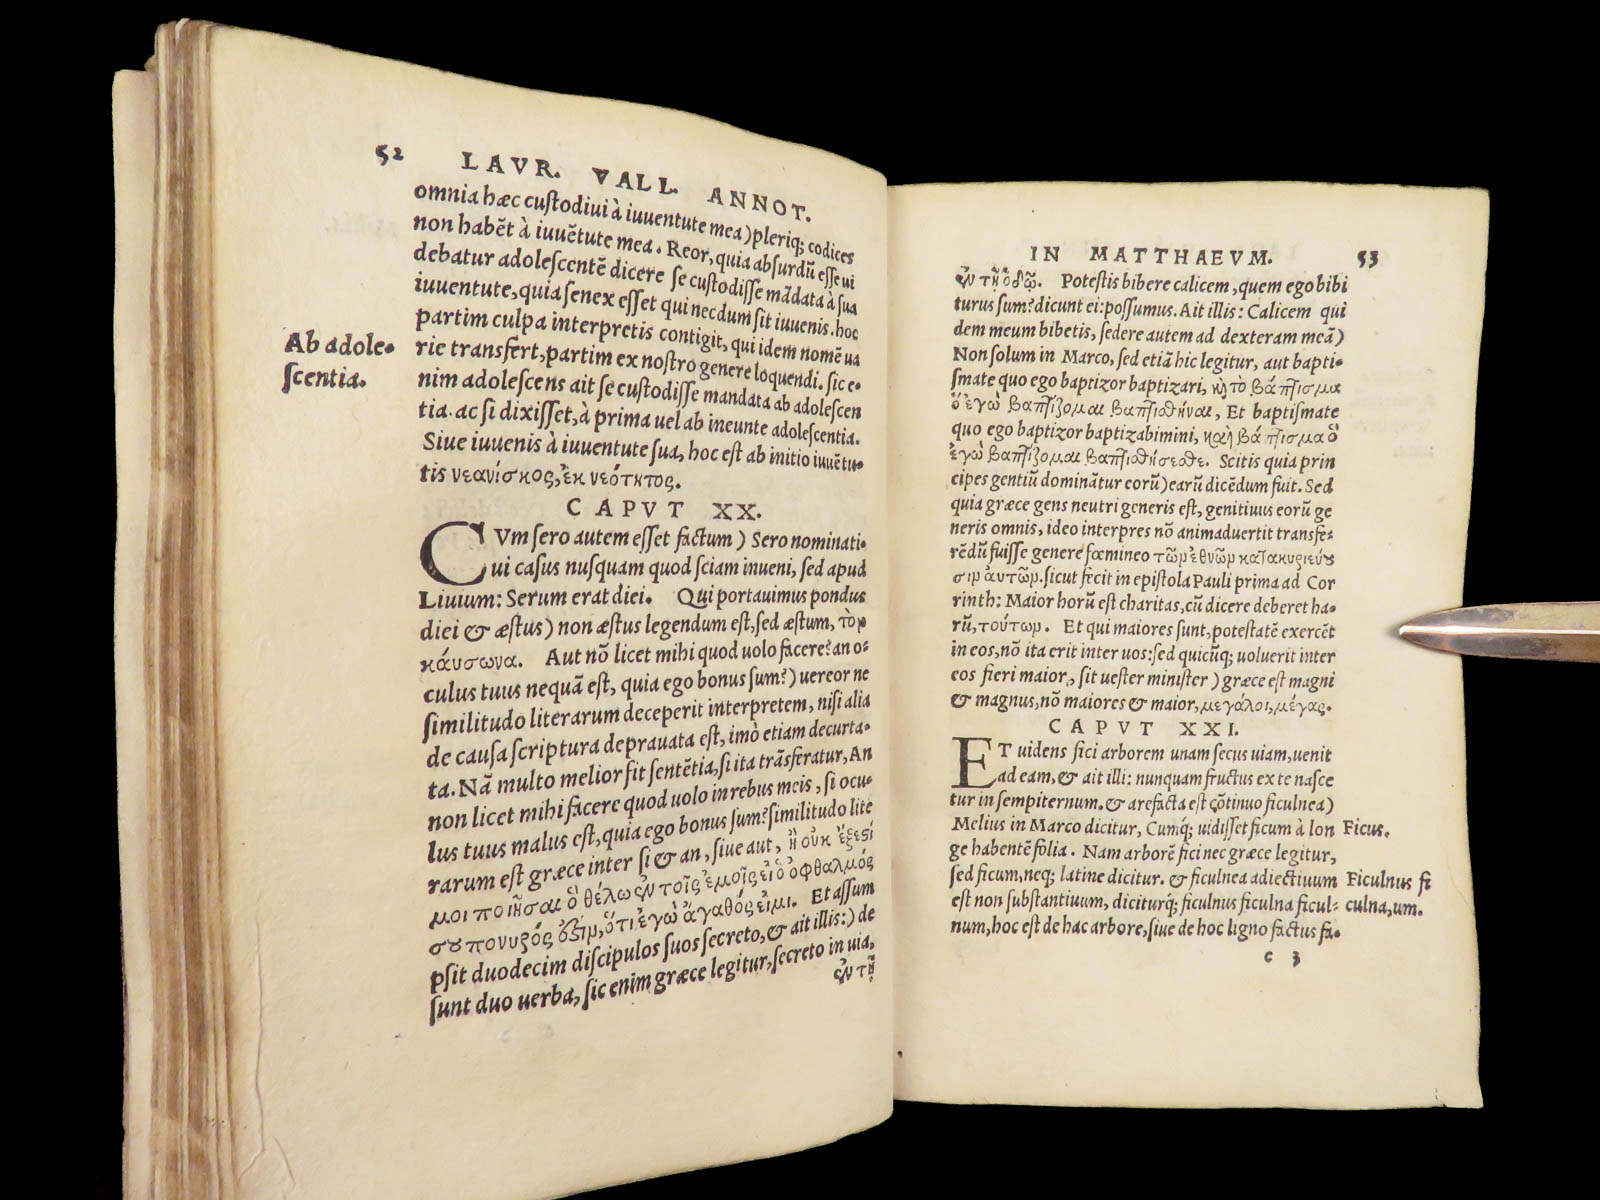 52 LAVR. VALL. ANNOT.
omnia hæc custodiui à iuuentute mea) pleriq; codices
non habẽt à iuuẽtute mea. Reor, quia absurdũ esse ui
debatur adolescentẽ dicere se custodisse mãdata à sua
iuuentute, quia senex esset qui necdum sit iuuenis. hoc
partim culpa interpretis contigit, qui idem nomẽ ua
rie transfert, partim ex nostro genere loquendi. sic e-
nim adolescens ait se custodisse mandata ab adolescen
tia. ac si dixisset, à prima uel ab ineunte adolescentia.
Siue iuuenis à iuuentute sua, hoc est ab initio iuuẽtu-
tis νεανίσκος, ἐκ νεότητος.
Ab adole-
scentia.
CAPVT XX.
CVm sero autem esset factum) Sero nominati-
ui casus nusquam quod sciam inueni, sed apud
Liuium: Serum erat diei. Qui portauimus pondus
diei & æstus) non æstus legendum est, sed æstum, τὸν
καύσωνα. Aut nõ licet mihi quod uolo facere? an o-
culus tuus nequã est, quia ego bonus sum?) uereor ne
similitudo literarum deceperit interpretem, nisi alia
de causa scriptura deprauata est, imò etiam decurta-
ta. Nã multo melior fit sentẽtia, si ita trãsferatur, An
non licet mihi facere quod uolo in rebus meis, si ocu-
lus tuus malus est, quia ego bonus sum? similitudo lite
rarum est græce inter si & an, siue aut, ἢ οὐκ ἔξεστί
μοι ποιῆσαι ὃ θέλω ἐν τοῖς ἐμοῖς εἰ ὁ ὀφθαλμός
σου πονηρός ἐστιν, ὅτι ἐγὼ ἀγαθός εἰμι. Et assum
psit duodecim discipulos suos secreto, & ait illis:) de
sunt duo uerba, sic enim græce legitur, secreto in uia,
ἐν τῇ
IN MATTHAEVM. 53
ἐν τῇ ὁδῷ. Potestis bibere calicem, quem ego bibi
turus sum? dicunt ei: possumus. Ait illis: Calicem qui
dem meum bibetis, sedere autem ad dexteram meã)
Non solum in Marco, sed etiã hic legitur, aut bapti-
smate quo ego baptizor baptizari, ἢ τὸ βάπτισμα
ὃ ἐγὼ βαπτίζομαι βαπτισθῆναι, Et baptismate
quo ego baptizor baptizabimini, καὶ βάπτισμα ὃ
ἐγὼ βαπτίζομαι βαπτισθήσεσθε. Scitis quia prin
cipes gentiũ dominãtur eorũ) earũ dicẽdum fuit. Sed
quia græce gens neutri generis est, genitiuus eorũ ge
neris omnis, ideo interpres nõ animaduertit transfe-
rẽdũ fuisse genere fœmineo τῶν ἐθνῶν κατακυριεύου
σιν αὐτῶν. sicut fecit in epistola Pauli prima ad Cor
rinth: Maior horũ est charitas, cũ dicere deberet ha-
rũ, τούτων. Et qui maiores sunt, potestatẽ exercẽt
in eos, nõ ita erit inter uos: sed quicũq; uoluerit inter
eos fieri maior, sit uester minister) græce est magni
& magnus, nõ maiores & maior, μεγάλοι, μέγας.
CAPVT XXI.
ET uidens fici arborem unam secus uiam, uenit
ad eam, & ait illi: nunquam fructus ex te nasce
tur in sempiternum. & arefacta est cõtinuo ficulnea)
Melius in Marco dicitur, Cumq́; uidisset ficum à lon
ge habentẽ folia. Nam arborẽ fici nec græce legitur,
sed ficum, neq; latine dicitur. & ficulnea adiectiuum
est non substantiuum, diciturq́; ficulnus ficulna ficul-
num, hoc est de hac arbore, siue de hoc ligno factus fa-
Ficus.
Ficulnus fi
culna, um.
c 3